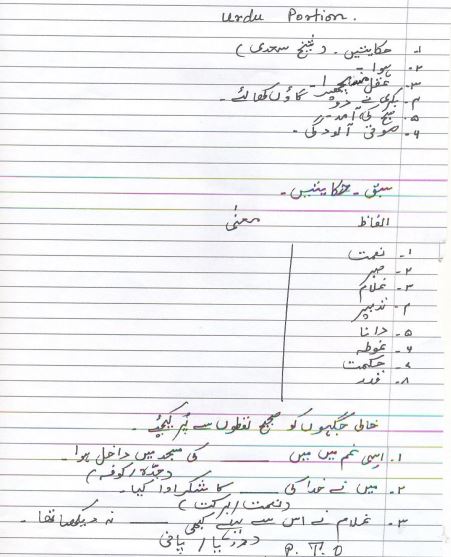 Urdu Portion.
۱۔ حکایتیں۔ (شیخ سعدی)
۲۔ ہوا۔
۳۔ عقل مند
۴۔ بکری نے دو گاؤں کھا لئے۔
۵۔ کی آمد۔
۶۔ صوتی آلودگی۔
سبق۔ حکایتیں۔
الفاظ معنٰی
۱۔ نعمت
۲۔ صبر
۳۔ غلام
۴۔ تدبیر
۵۔ دانا
۶۔ غوطہ
۷۔ حکمت
۸۔ قدر
خالی جگہوں کو صحیح لفظوں سے پُر کیجئے۔
۱. اسی غم میں میں ______ کی مسجد میں داخل ہوا۔
(جدّہ / کوفہ)
۲. میں نے خدا کی ______ کا شکر ادا کیا۔
(نعمت / برکت)
۳. غلام نے اس سے پہلے کبھی ______ نہ دیکھا تھا۔
(دریا / پانی)
P.T.O